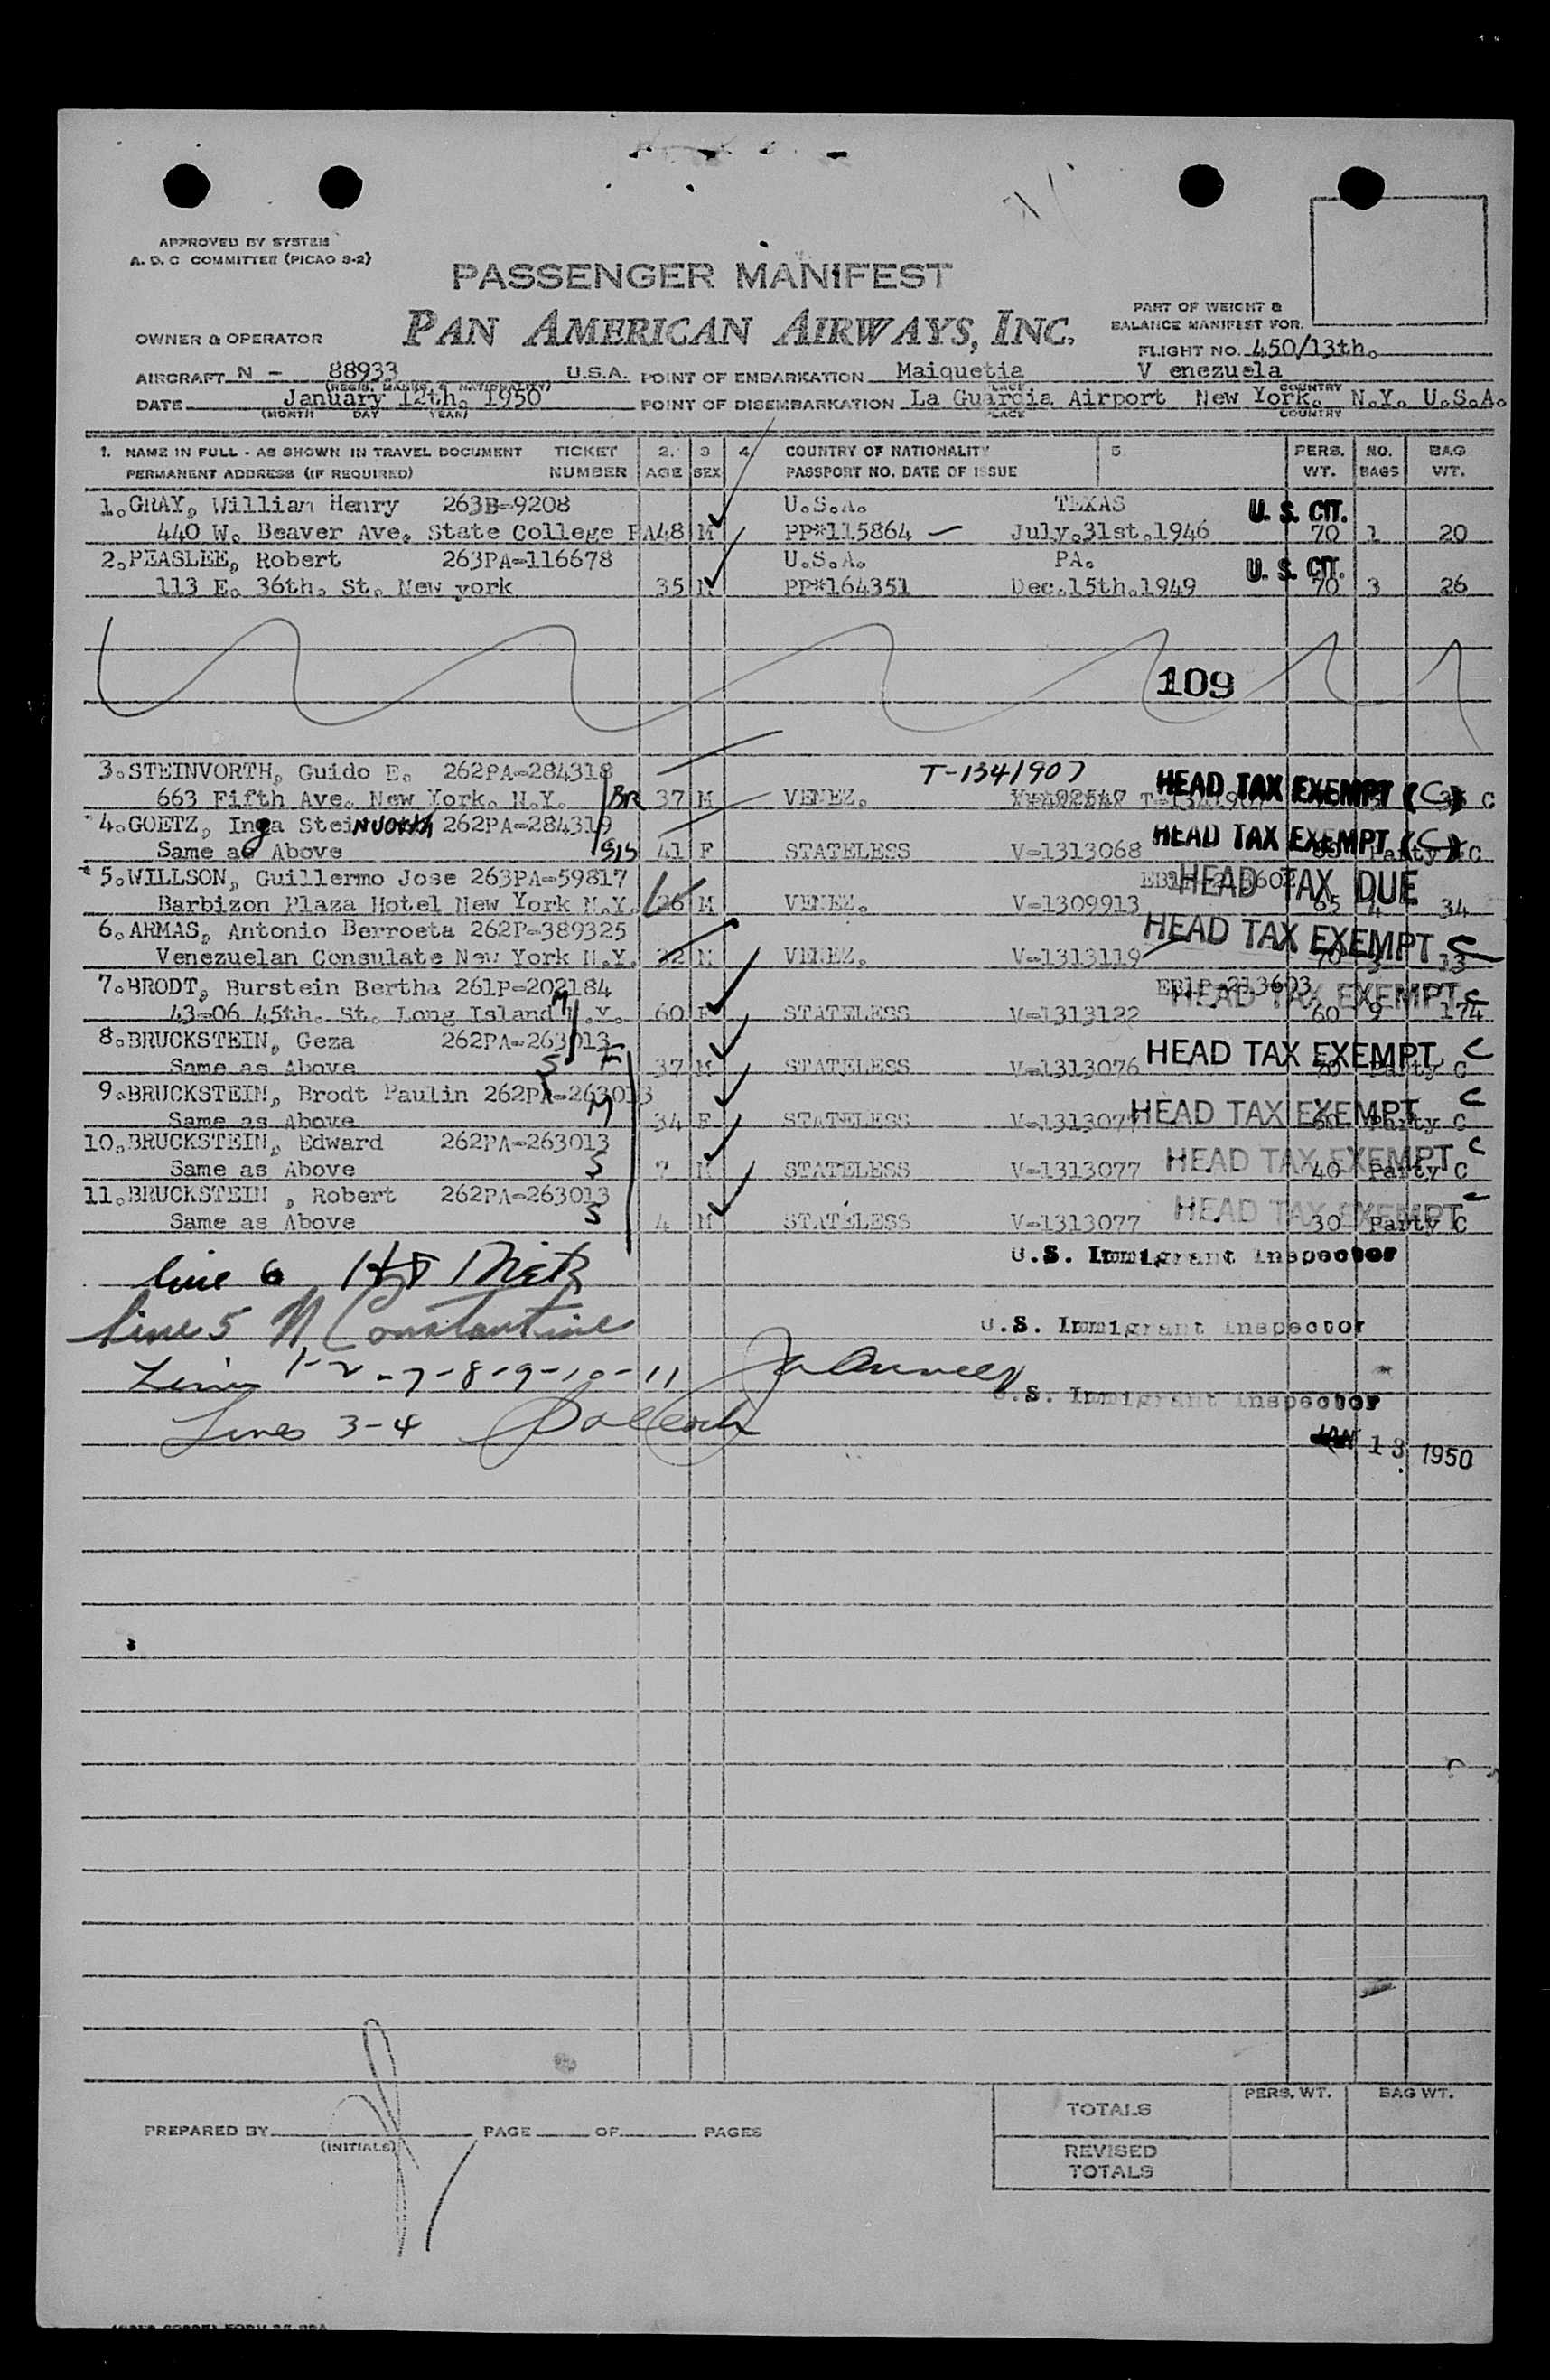 APPROVED BY SYSTEM
A. D. C COMMITTEE (PICAO 9-2)
PASSENGER MANIFEST
PAN AMERICAN AIRWAYS, INC.
PART OF WEIGHT &
BALANCE MANIFEST FOR
OWNER & OPERATOR
FLIGHT NO. 450/13th.
AIRCRAFT N - 88933 U.S.A. POINT OF EMBARKATION Maiquetia V enezuela
(REGIS. MARKS & NATIONALITY) PLACE COUNTRY
DATE January 12th. 1950 POINT OF DISEMBARKATION La Guardia Airport New York. N.Y. U.S.A.
(MONTH DAY YEAR) PLACE COUNTRY
1. NAME IN FULL - AS SHOWN IN TRAVEL DOCUMENT TICKET 2. 3 4. COUNTRY OF NATIONALITY 5. PERS. NO. BAG
PERMANENT ADDRESS (IF REQUIRED) NUMBER AGE SEX PASSPORT NO. DATE OF ISSUE WT. BAGS WT.
1. GRAY, William Henry 263B-9208 U.S.A. TEXAS U. S. CIT.
440 W. Beaver Ave. State College PA 48 M PP#115864 July.31st.1946 70 1 20
2. PEASLEE, Robert 263PA-116678 U.S.A. PA. U. S. CIT.
113 E. 36th. St. New york 35 M PP#164351 Dec.15th.1949 70 3 26
109
3. STEINVORTH, Guido E. 262PA-284318 T-1341907 HEAD TAX EXEMPT (C)
663 Fifth Ave. New York. N.Y. BR 37 M VENEZ. C
4. GOETZ, Inga Stei 262PA-284319 HEAD TAX EXEMPT (C)
Same as Above SIS 41 F STATELESS V-1313068 Party C
5. WILLSON, Guillermo Jose 263PA-59817 HEAD TAX DUE
Barbizon Plaza Hotel New York N.Y. 26 M VENEZ. V-1309913 65 4 34
6. ARMAS, Antonio Berroeta 262P-389325 HEAD TAX EXEMPT C
Venezuelan Consulate New York N.Y. 22 M VENEZ. V-1313119 70 3 33
7. BRODT, Burstein Bertha 261P-202184 EB1P-213603 HEAD TAX EXEMPT C
43-06 45th. St. Long Island N.Y. M 60 F STATELESS V-1313122 60 9 174
8. BRUCKSTEIN, Geza 262PA-263013 HEAD TAX EXEMPT C
Same as Above S F 37 M STATELESS V-1313076 70 Party C
9. BRUCKSTEIN, Brodt Paulin 262PA-263013 HEAD TAX EXEMPT C
Same as Above M 34 F STATELESS V-1313077 60 Party C
10. BRUCKSTEIN, Edward 262PA-263013 HEAD TAX EXEMPT C
Same as Above S 7 M STATELESS V-1313077 40 Party C
11. BRUCKSTEIN , Robert 262PA-263013 HEAD TAX EXEMPT C
Same as Above S 4 M STATELESS V-1313077 30 Party C
U.S. Immigrant Inspector
Line 6
Line 5 N Constantine U.S. Immigrant Inspector
Lines 1-2-7-8-9-10-11
U.S. Immigrant Inspector
Lines 3-4
JAN 13 1950
PERS. WT. BAG WT.
TOTALS
PREPARED BY PAGE OF PAGES
(INITIALS)
REVISED
TOTALS